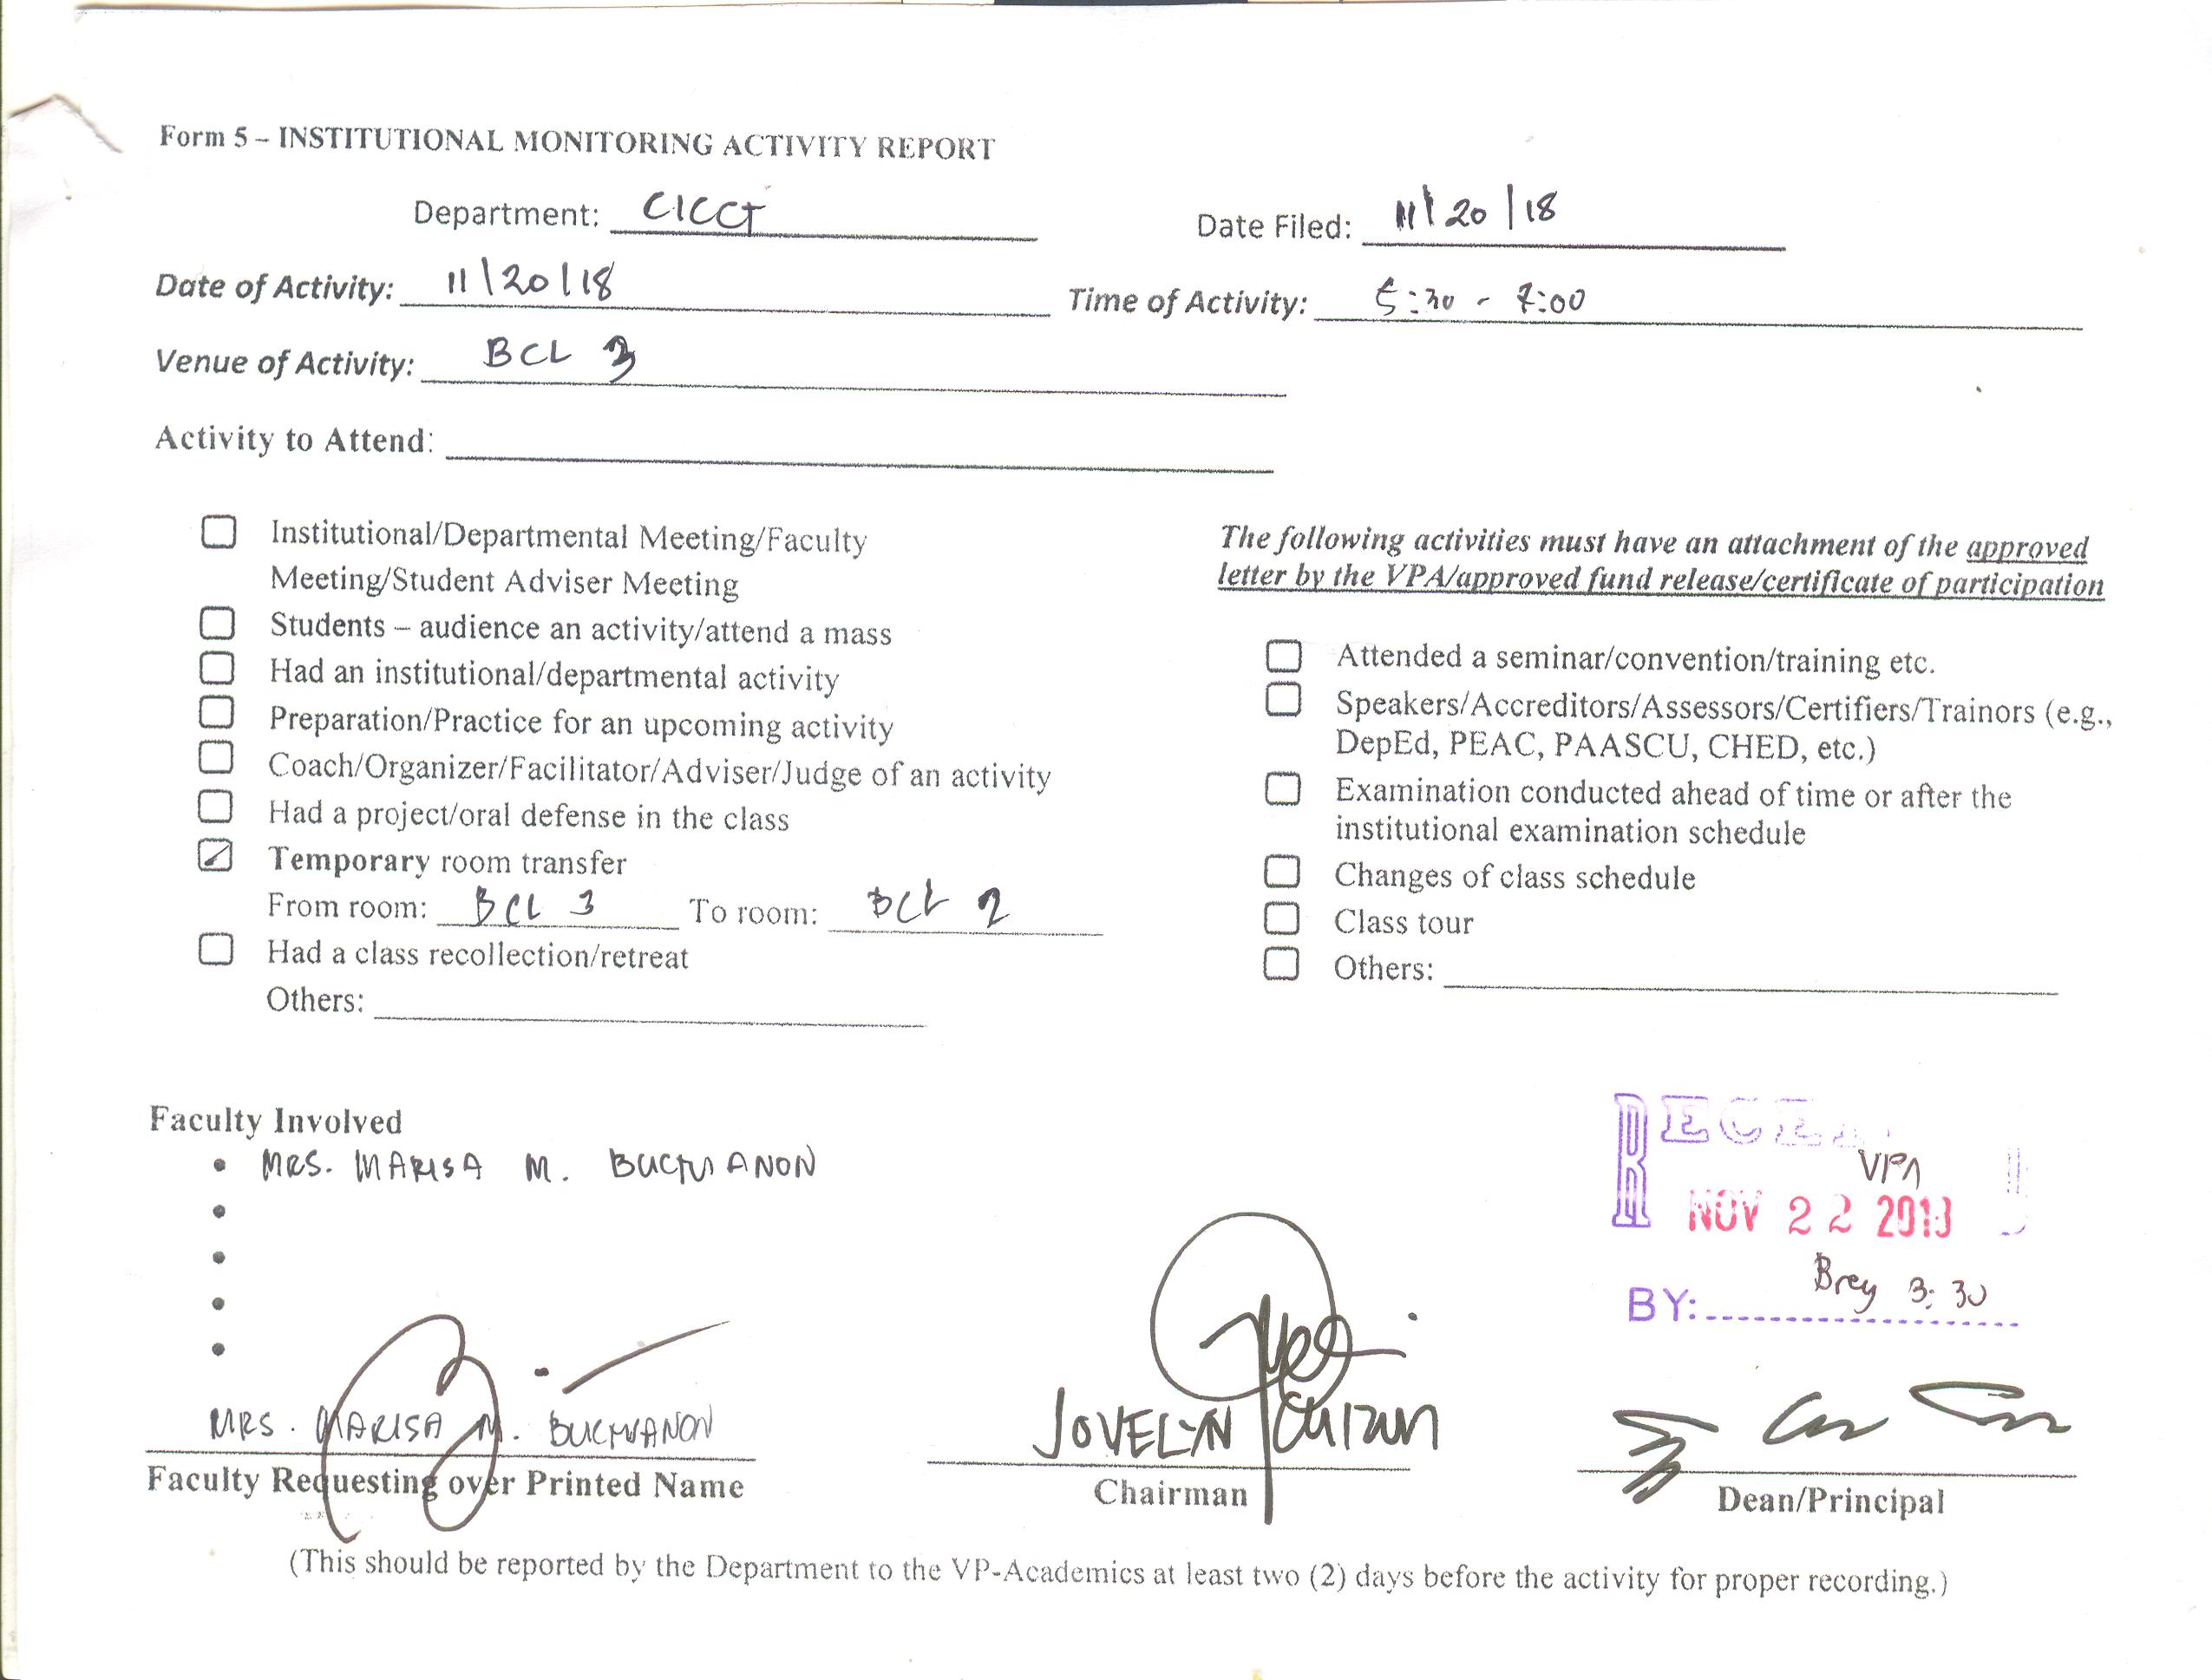 Form 5 – INSTITUTIONAL MONITORING ACTIVITY REPORT
Department: CICCT
Date Filed: 11/20/18
Date of Activity: 11/20/18
Time of Activity: 5:30 - 7:00
Venue of Activity: BCL 3
Activity to Attend:
Institutional/Departmental Meeting/Faculty
Meeting/Student Adviser Meeting
Students – audience an activity/attend a mass
Had an institutional/departmental activity
Preparation/Practice for an upcoming activity
Coach/Organizer/Facilitator/Adviser/Judge of an activity
Had a project/oral defense in the class
Temporary room transfer
From room: BCL 3 To room: BCL 2
Had a class recollection/retreat
Others:
The following activities must have an attachment of the approved
letter by the VPA/approved fund release/certificate of participation
Attended a seminar/convention/training etc.
Speakers/Accreditors/Assessors/Certifiers/Trainors (e.g.,
DepEd, PEAC, PAASCU, CHED, etc.)
Examination conducted ahead of time or after the
institutional examination schedule
Changes of class schedule
Class tour
Others:
Faculty Involved
MRS. MARISA M. BUCTUANON
VPA
NOV 22 2018
BY: Brey 3:30
MRS. MARISA M. BUCTUANON
Faculty Requesting over Printed Name
JOVELYN CUIZON
Chairman
Dean/Principal
(This should be reported by the Department to the VP-Academics at least two (2) days before the activity for proper recording.)